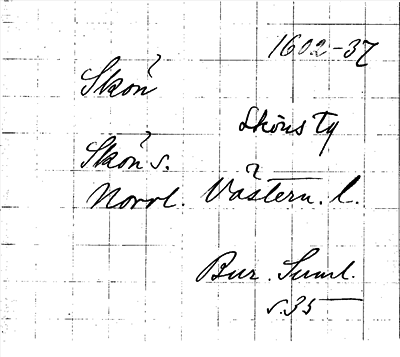 1602-37
Skön
Sköns ty
Sköns s.
Norrl. Västern. l.
Bur. Suml.
s. 35